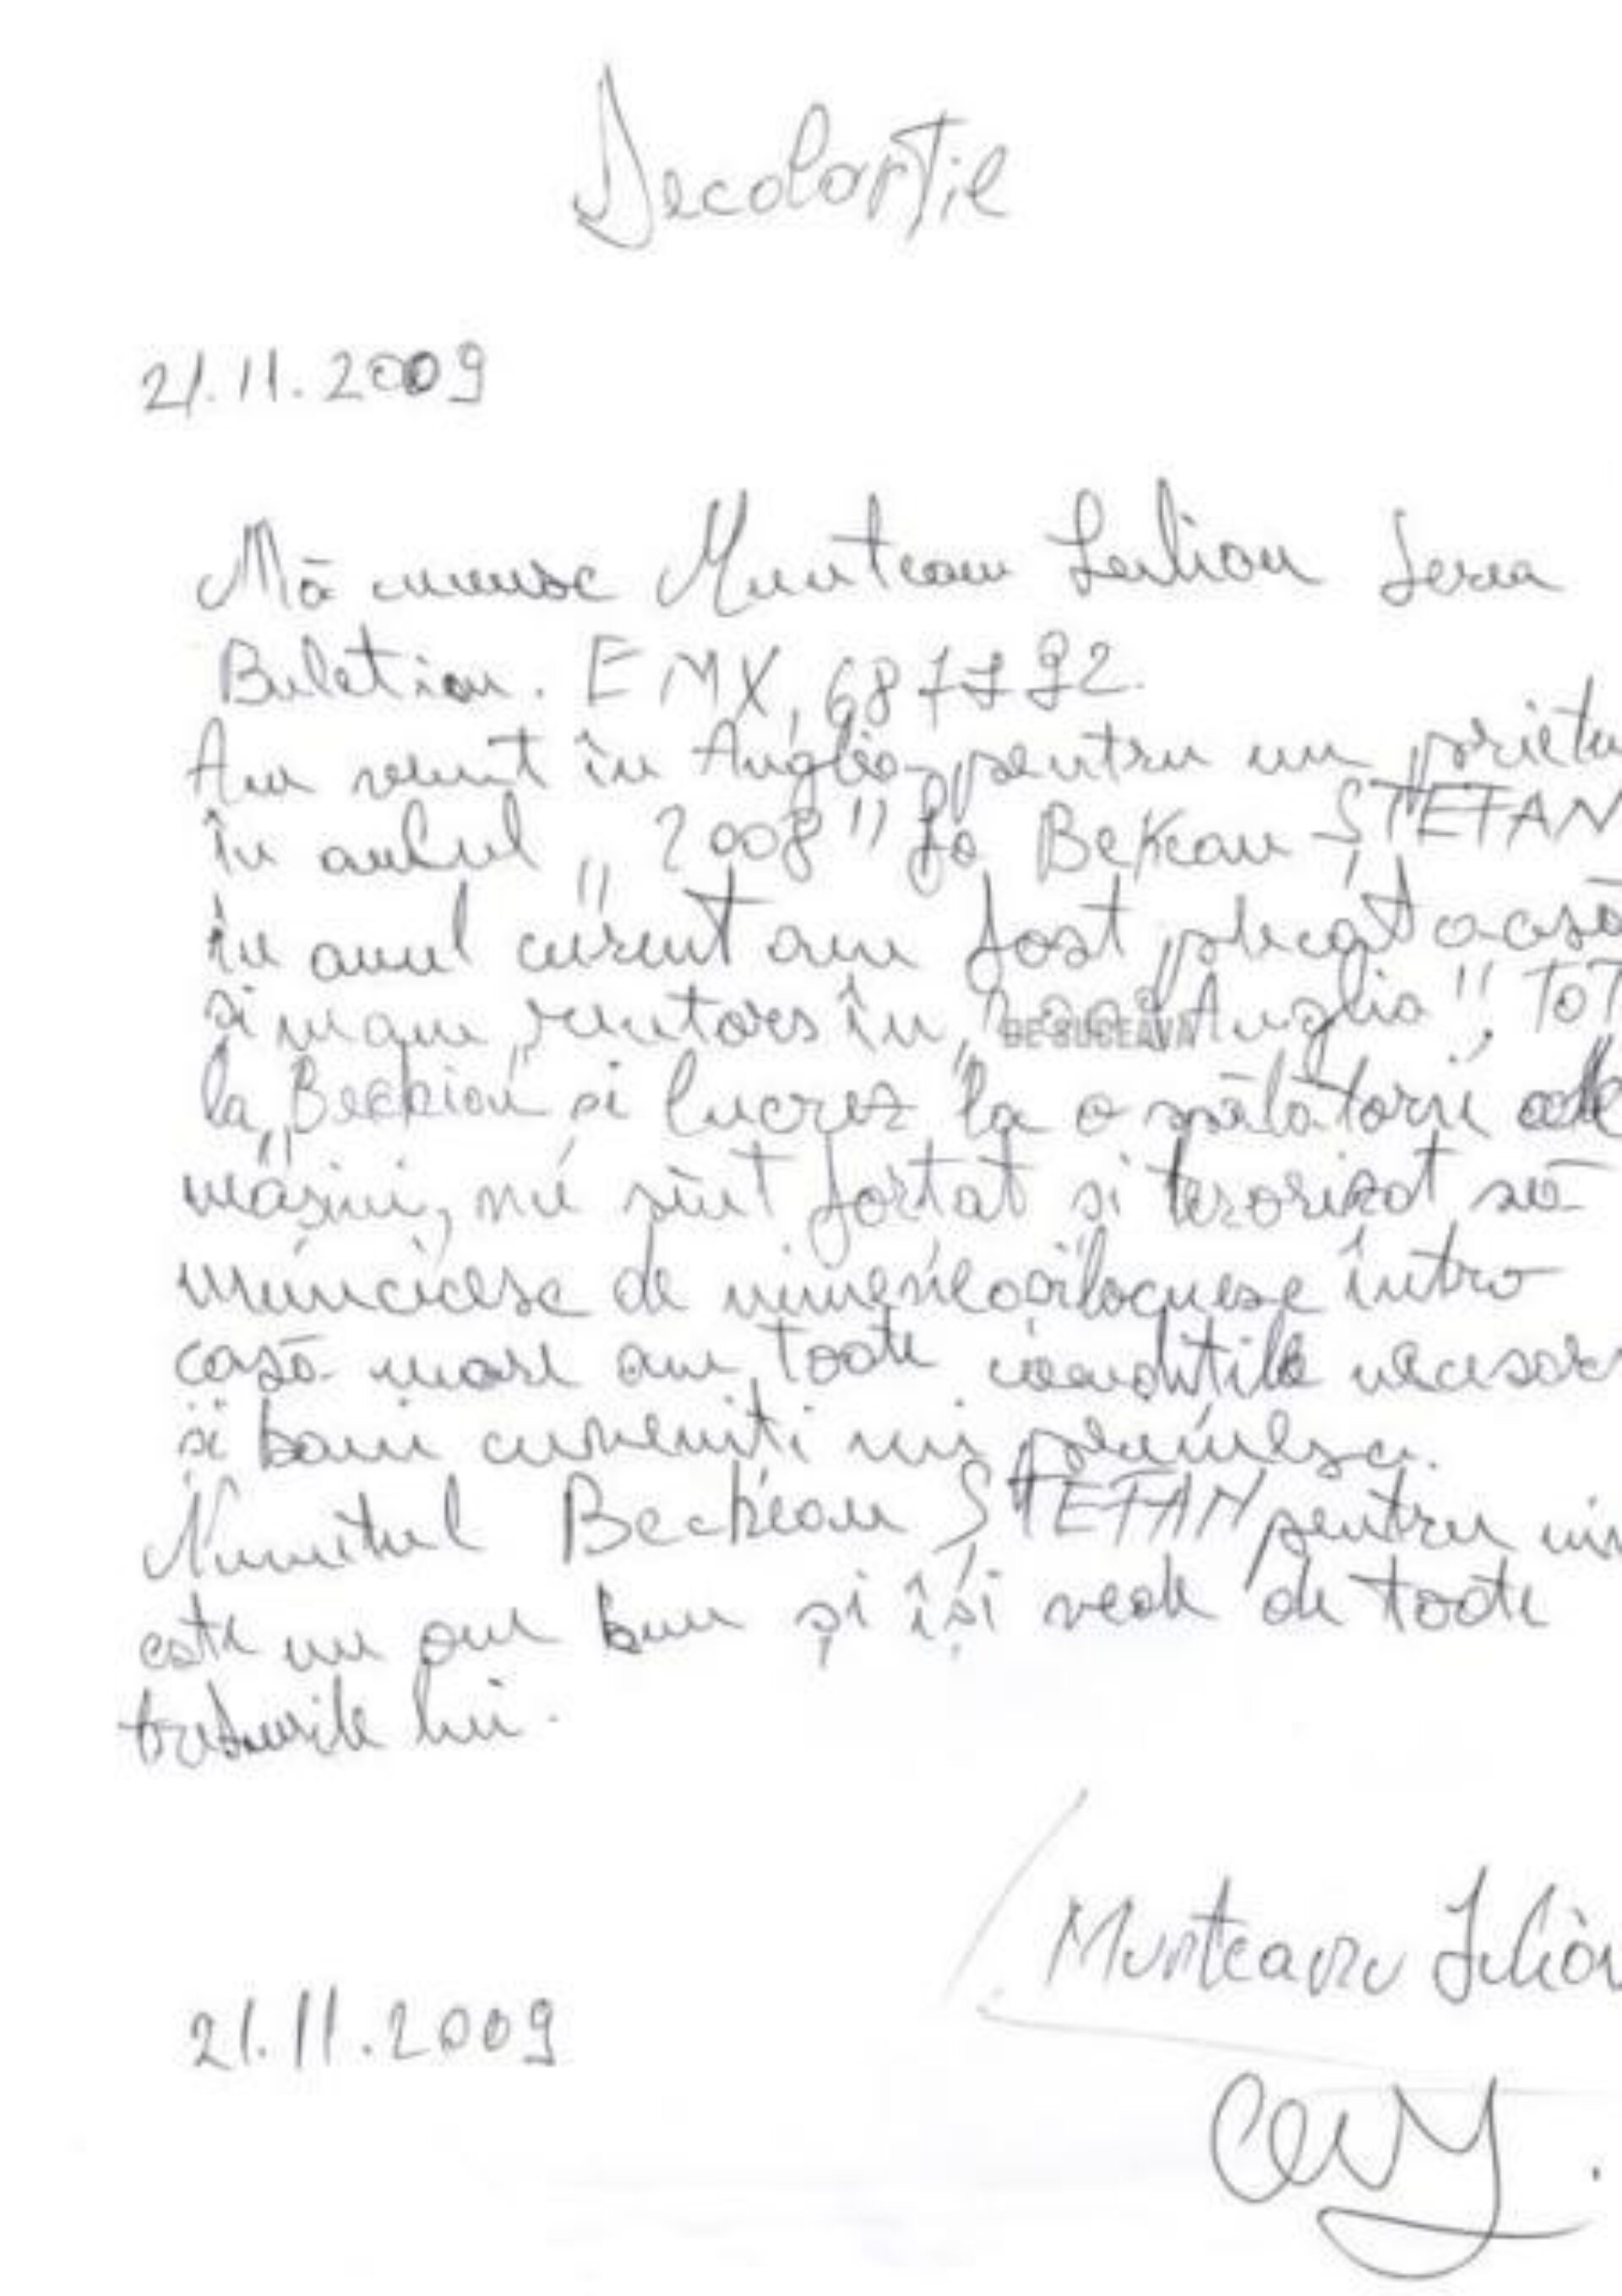 Declarție
21.11.2009
Mă numesc Muntean Iulian Seria
Buletian. E MX, 687792.
Am venit în Anglia pentru un prietu
în anlul „2008" la Bekean ȘTEFAN
în anul curent am fost plecat acasă
si mam rentors în „2009 Anglia", TOT
DE SUCEAVA
la „Beckian" si lucrez la o spălătorii de
mașini, nu sînt fortat si terorizat să
muncicesc de nimeni locuiesc într o
casă mare am toate condițile necesar
si bani cuveniti mi primesc.
Numitul Beckean ȘTEFAN pentru min
este un om bun și își vede de toate
trebuirile lui.
Munteanu Iulian
21.11.2009